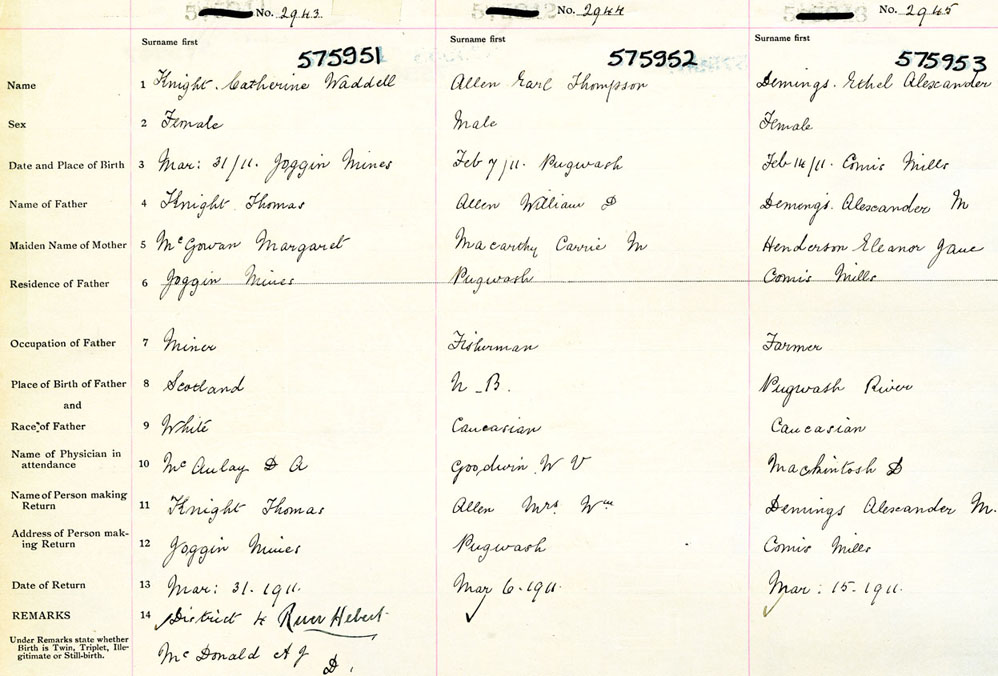 No. 2943 No. 2944 No. 2945
Surname first Surname first Surname first
575951 575952 575953
Name 1 Knight. Catherine Waddell Allen Earl Thompson Demings. Ethel Alexander
Sex 2 Female Male Female
Date and Place of Birth 3 Mar: 31/11. Joggin Mines Feb 7/11. Pugwash Feb 14/11. Conns Mills
Name of Father 4 Knight Thomas Allen William D Demings. Alexander M
Maiden Name of Mother 5 McGowan Margaret Macarthy Carrie M Henderson Eleanor Jane
Residence of Father 6 Joggin Mines Pugwash Conns Mills
Occupation of Father 7 Miner Fisherman Farmer
Place of Birth of Father 8 Scotland N_B. Pugwash River
and
Race of Father 9 White Caucasian Caucasian
Name of Physician in
attendance 10 McAulay D A Goodwin W V Mackintosh D
Name of Person making
Return 11 Knight Thomas Allen Mrs Wm Demings Alexander M.
Address of Person mak-
ing Return 12 Joggin Mines Pugwash Conns Mills
Date of Return 13 Mar: 31. 1911. Mar 6. 1911. Mar: 15. 1911.
REMARKS 14 District 4 River Hebert
Under Remarks state whether
Birth is Twin, Triplet, Ille-
gitimate or Still-birth. McDonald A J
D.